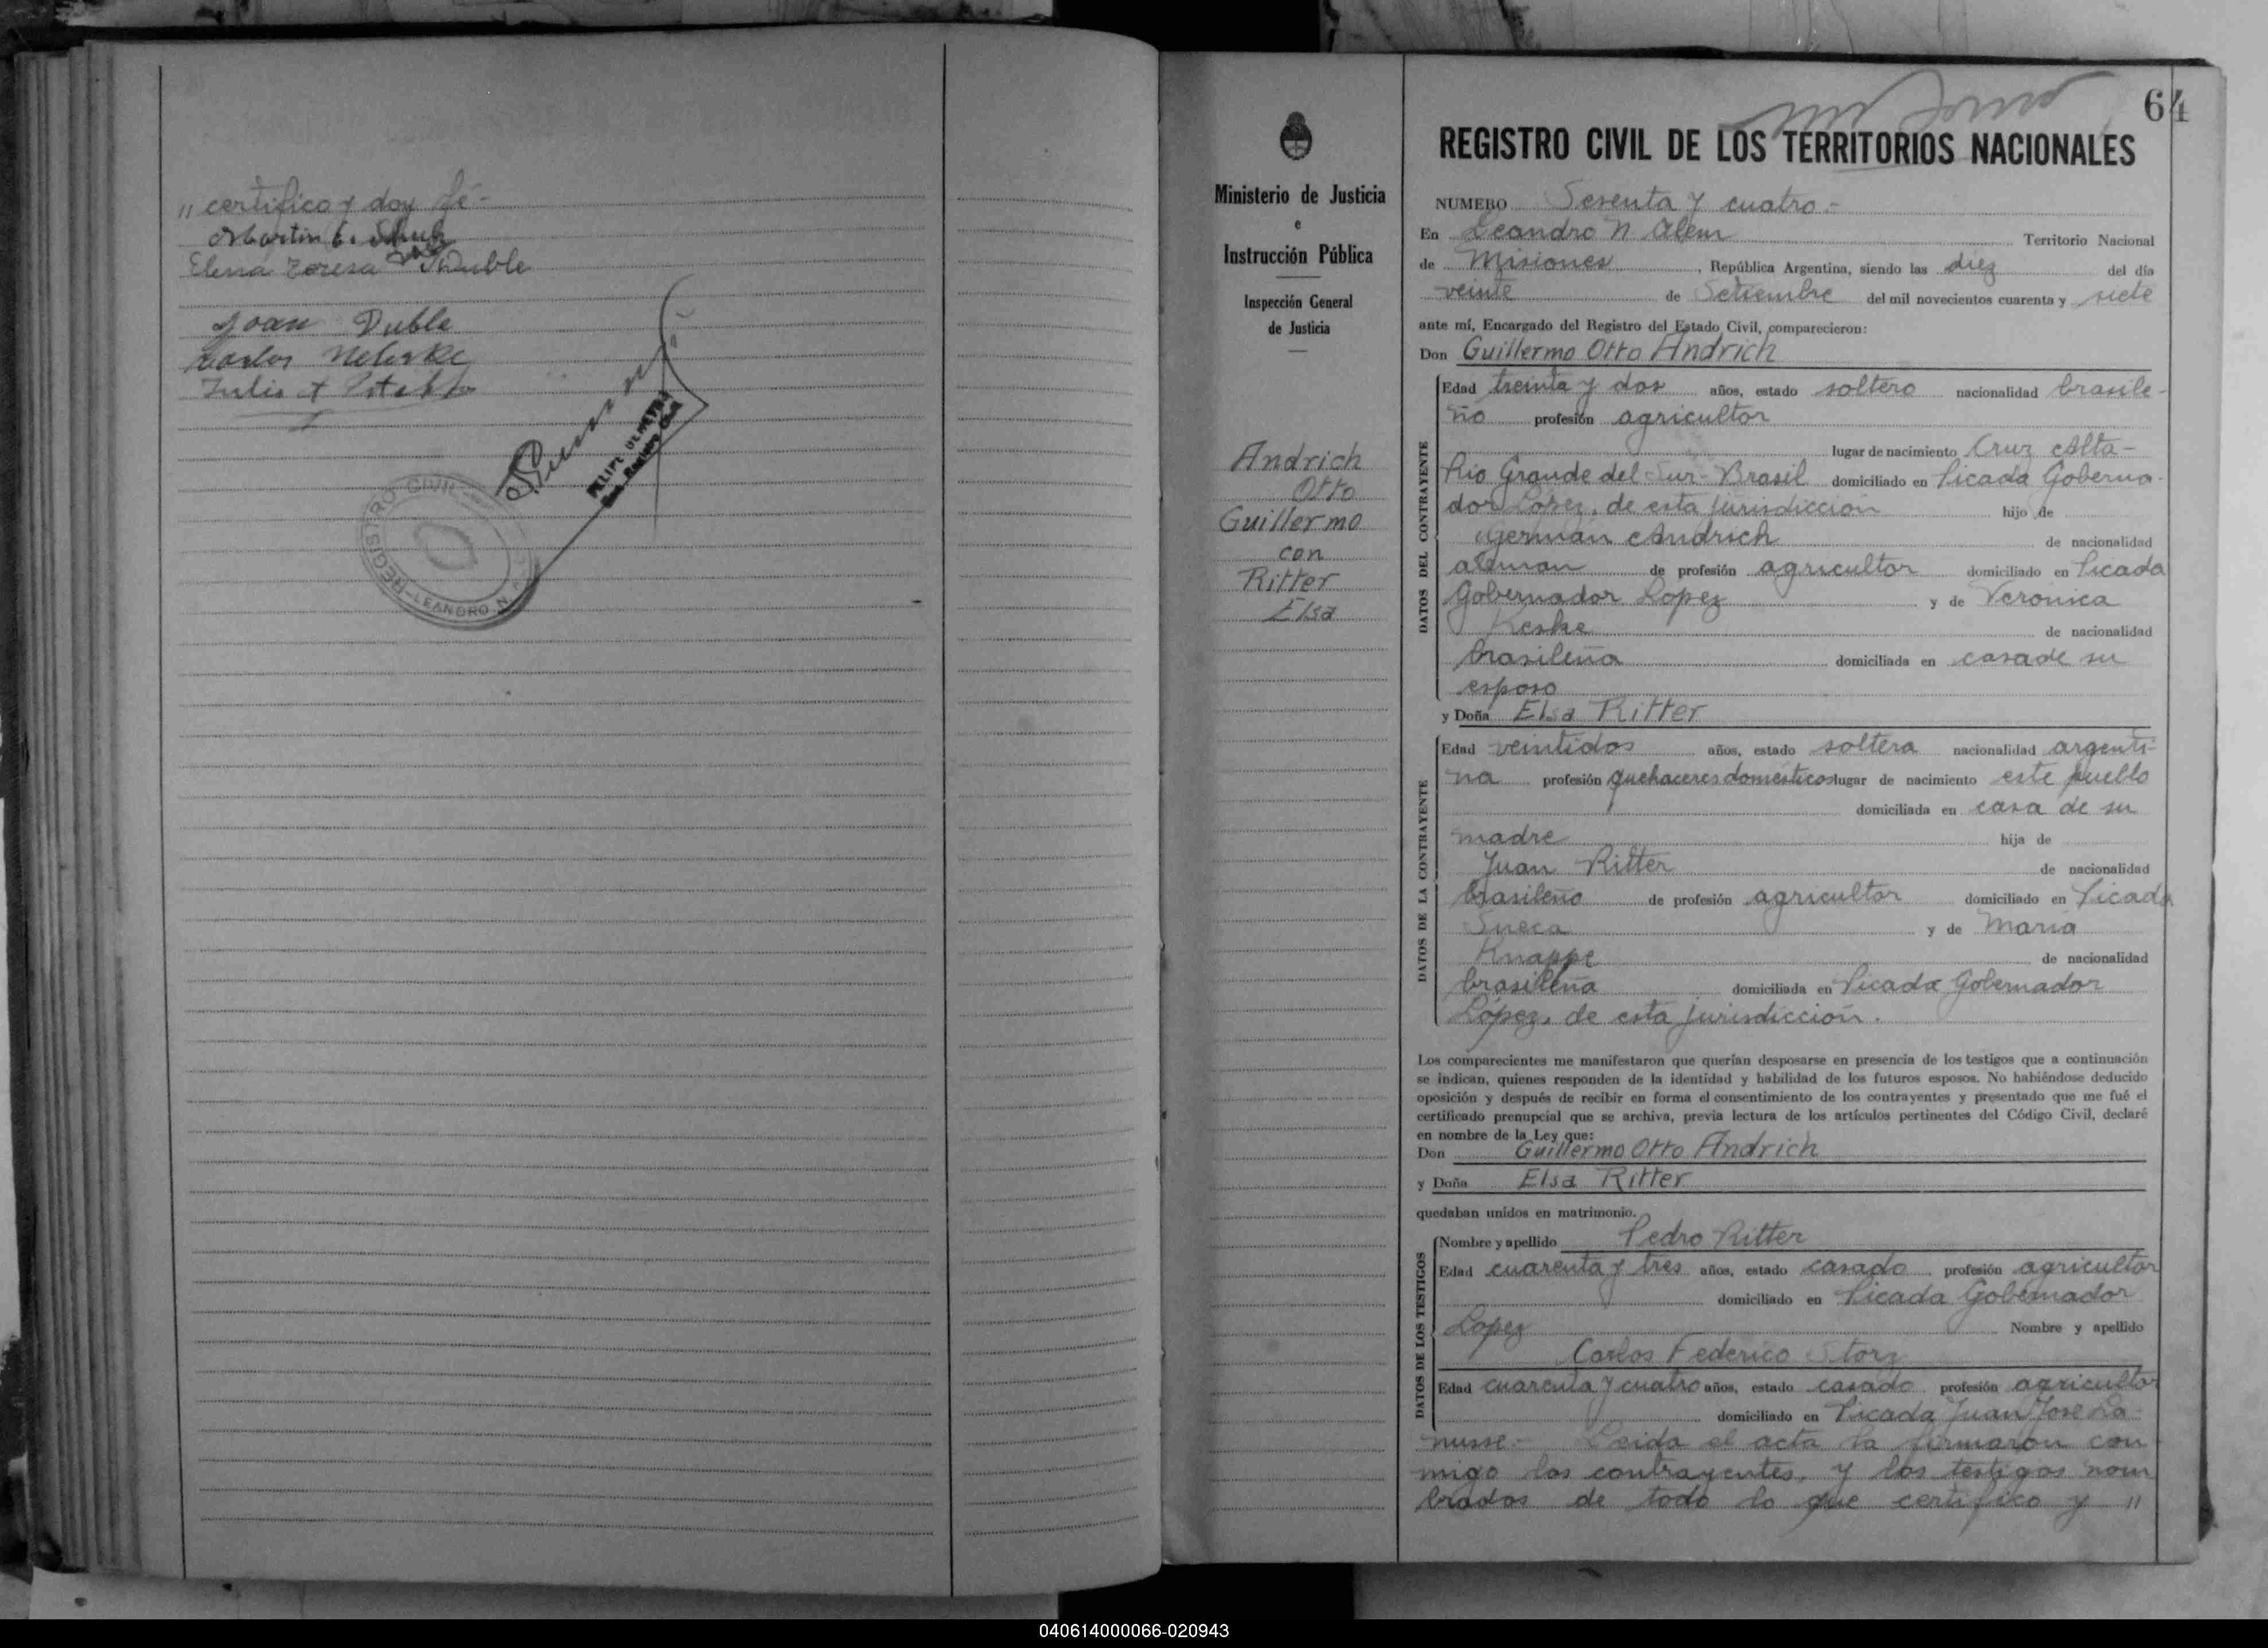 " certifico y doy fé-
Martin E.
Elena Teresa Duble
Joan Duble
Carlos
Julio A
FELIPE
Enc. Registro Civil
REGISTRO CIVIL
LEANDRO N.
64
Ministerio de Justicia
e
Instrucción Pública
Inspección General
de Justicia
Andrich
Otto
Guillermo
con
Ritter
Elsa
REGISTRO CIVIL DE LOS TERRITORIOS NACIONALES
NUMERO Sesenta y cuatro.-
En Leandro N Alem Territorio Nacional
de Misiones, República Argentina, siendo las diez del día
veinte de Setiembre del mil novecientos cuarenta y siete
ante mí, Encargado del Registro del Estado Civil, comparecieron:
Don Guillermo Otto Andrich
DATOS DEL CONTRAYENTE
Edad treinta y dos años, estado soltero nacionalidad brasile-
ño profesión agricultor
lugar de nacimiento Cruz Alta-
Rio Grande del Sur-Brasil domiciliado en Picada Goberna-
dor López, de esta jurisdicción hijo de
Germán Andrich de nacionalidad
aleman de profesión agricultor domiciliado en Picada
Gobernador Lopez y de Veronica
Keske de nacionalidad
brasileña domiciliada en casa de su
esposo
y Doña Elsa Ritter
DATOS DE LA CONTRAYENTE
Edad veintidos años, estado soltera nacionalidad argenti-
na profesión quehaceres domésticos lugar de nacimiento este pueblo
domiciliada en casa de su
madre hija de
Juan Ritter de nacionalidad
brasileño de profesión agricultor domiciliado en Picada
Sueca y de Maria
Knappe de nacionalidad
brasileña domiciliada en Picada Gobernador
López, de esta jurisdicción.
Los comparecientes me manifestaron que querían desposarse en presencia de los testigos que a continuación
se indican, quienes responden de la identidad y habilidad de los futuros esposos. No habiéndose deducido
oposición y después de recibir en forma el consentimiento de los contrayentes y presentado que me fué el
certificado prenupcial que se archiva, previa lectura de los artículos pertinentes del Código Civil, declaré
en nombre de la Ley que:
Don Guillermo Otto Andrich
y Doña Elsa Ritter
quedaban unidos en matrimonio.
DATOS DE LOS TESTIGOS
Nombre y apellido Pedro Ritter
Edad cuarenta y tres años, estado casado profesión agricultor
domiciliado en Picada Gobernador
Lopez Nombre y apellido
Carlos Federico Storz
Edad cuarenta y cuatro años, estado casado profesión agricultor
domiciliado en Picada Juan José La-
nusse.- Leida el acta la firmaron con
migo los contrayentes, y los testigos nom
brados de todo lo que certifico y "
040614000066-020943